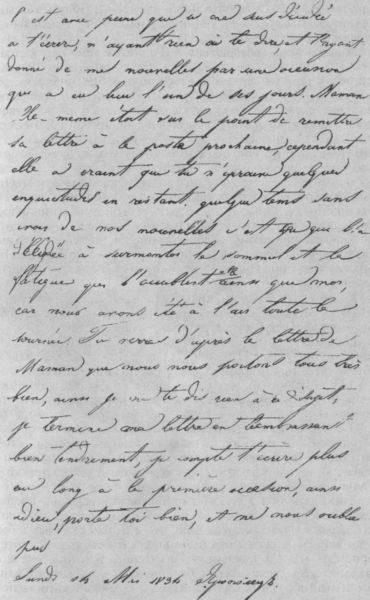 C'est avec peine que je me suis décidée
à t'écrire, n'ayant rien à te dire, et t'ayant
donné de mes nouvelles par une occasion
qui a eu lieu l'un de ces jours. Maman
Elle-même était sur le point de remettre
sa lettre à la poste prochaine, cependant
elle a craint que tu n'éprouve quelques
inquiétudes en restant quelque tems sans
avoir de nos nouvelles c'est ce qui l'a
décidée à surmonter le sommeil et la
fatigue qui l'accablent elle ainsi que moi,
car nous avons été à l'air toute la
journée. Tu verras d'après la lettre de
Maman que nous nous portons tous très
bien, ainsi je ne te dis rien à ce sujet,
je termine ma lettre en t'embrassant
bien tendrement, je compte t'écrire plus
au long à la première occasion, ainsi
adieu, porte toi bien, et ne nous oublie
pas
Lundi 14 Mai 1834